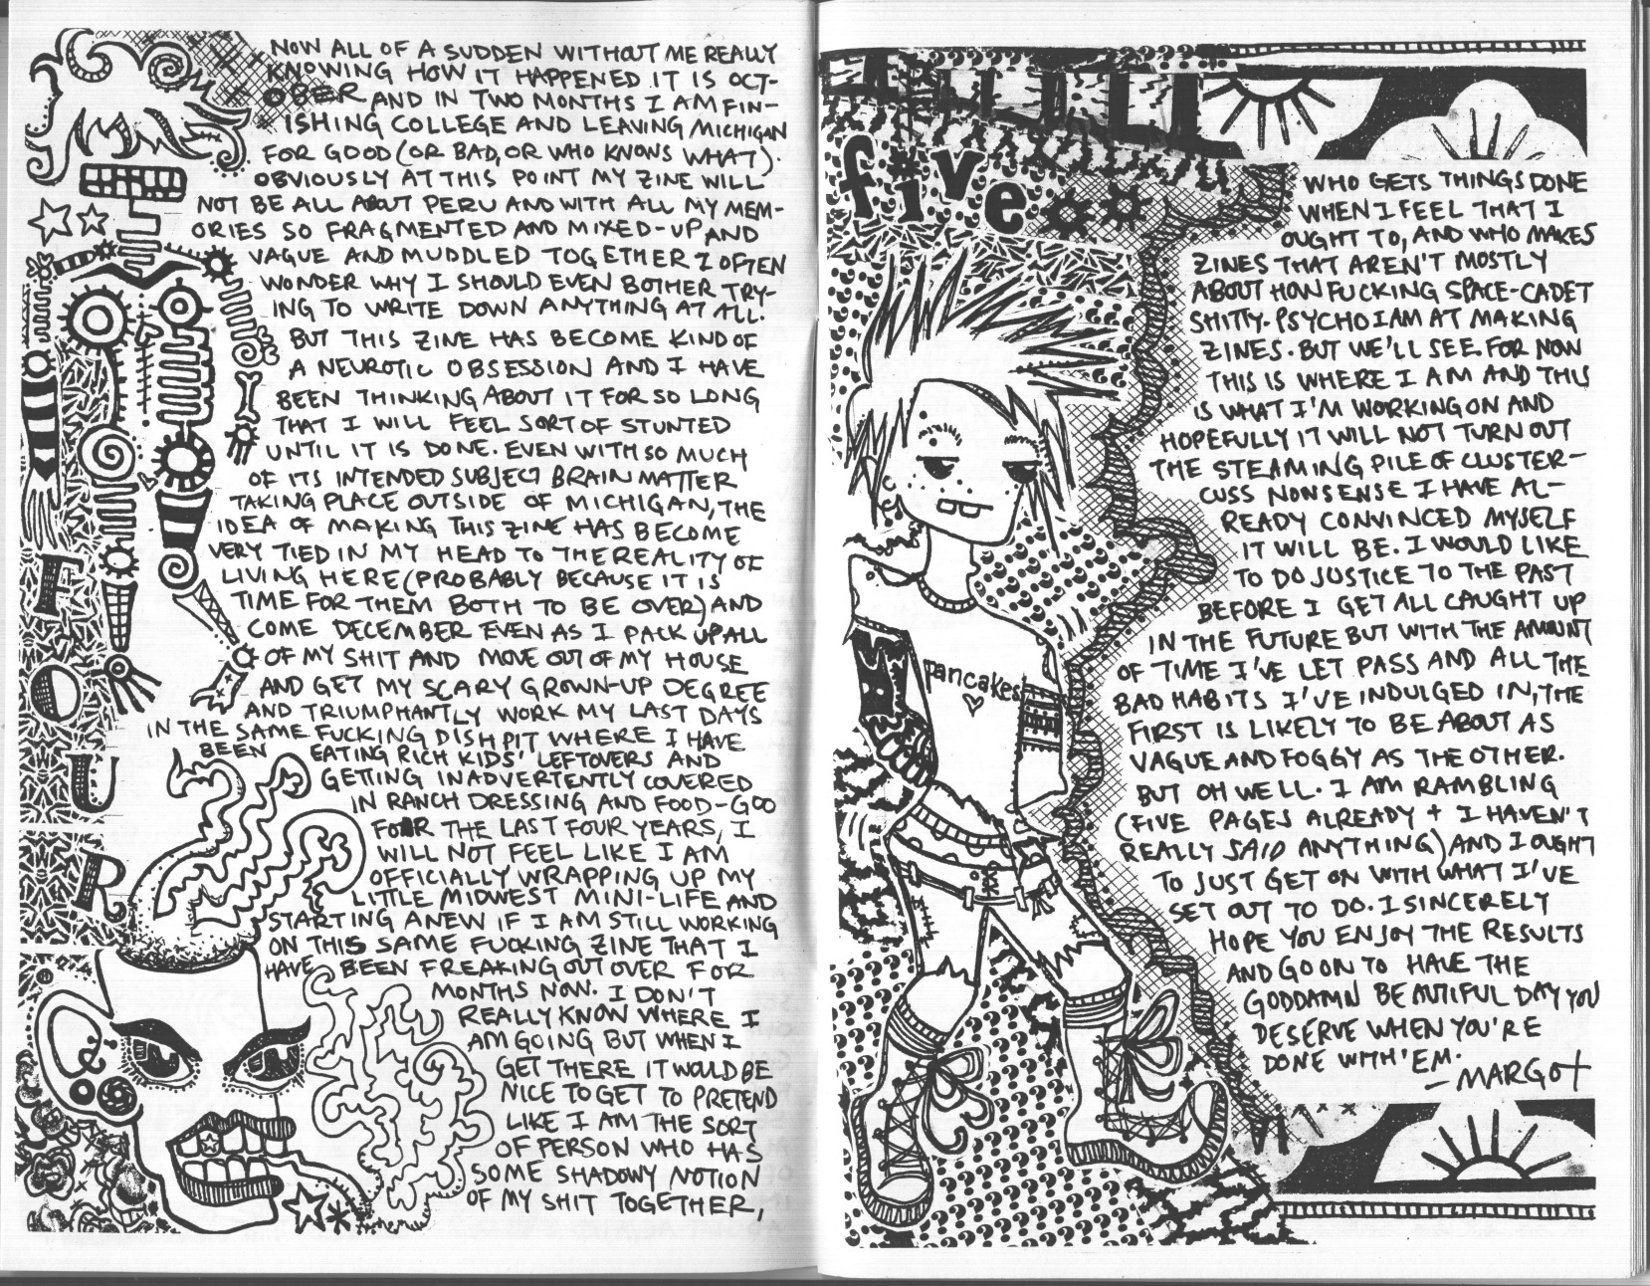 NOW ALL OF A SUDDEN WITHOUT ME REALLY
KNOWING HOW IT HAPPENED IT IS OCT-
OBER AND IN TWO MONTHS I AM FIN-
ISHING COLLEGE AND LEAVING MICHIGAN
FOR GOOD (OR BAD, OR WHO KNOWS WHAT).
OBVIOUSLY AT THIS POINT MY ZINE WILL
NOT BE ALL ABOUT PERU AND WITH ALL MY MEM-
ORIES SO FRAGMENTED AND MIXED-UP AND
VAGUE AND MUDDLED TOGETHER I OFTEN
WONDER WHY I SHOULD EVEN BOTHER TRY-
ING TO WRITE DOWN ANYTHING AT ALL.
BUT THIS ZINE HAS BECOME KIND OF
A NEUROTIC OBSESSION AND I HAVE
BEEN THINKING ABOUT IT FOR SO LONG
THAT I WILL FEEL SORT OF STUNTED
UNTIL IT IS DONE. EVEN WITH SO MUCH
OF ITS INTENDED SUBJECT BRAIN MATTER
TAKING PLACE OUTSIDE OF MICHIGAN, THE
IDEA OF MAKING THIS ZINE HAS BECOME
VERY TIED IN MY HEAD TO THE REALITY OF
LIVING HERE (PROBABLY BECAUSE IT IS
TIME FOR THEM BOTH TO BE OVER) AND
COME DECEMBER EVEN AS I PACK UP ALL
OF MY SHIT AND MOVE OUT OF MY HOUSE
AND GET MY SCARY GROWN-UP DEGREE
AND TRIUMPHANTLY WORK MY LAST DAYS
IN THE SAME FUCKING DISHPIT WHERE I HAVE
BEEN EATING RICH KIDS' LEFTOVERS AND
GETTING INADVERTENTLY COVERED
IN RANCH DRESSING AND FOOD-GOO
FOR THE LAST FOUR YEARS, I
WILL NOT FEEL LIKE I AM
OFFICIALLY WRAPPING UP MY
LITTLE MIDWEST MINI-LIFE AND
STARTING ANEW IF I AM STILL WORKING
ON THIS SAME FUCKING ZINE THAT I
HAVE BEEN FREAKING OUT OVER FOR
MONTHS NOW. I DON'T
REALLY KNOW WHERE I
AM GOING BUT WHEN I
GET THERE IT WOULD BE
NICE TO GET TO PRETEND
LIKE I AM THE SORT
OF PERSON WHO HAS
SOME SHADOWY NOTION
OF MY SHIT TOGETHER,
FOUR
five
WHO GETS THINGS DONE
WHEN I FEEL THAT I
OUGHT TO, AND WHO MAKES
ZINES THAT AREN'T MOSTLY
ABOUT HOW FUCKING SPACE-CADET
SHITTY-PSYCHO I AM AT MAKING
ZINES. BUT WE'LL SEE. FOR NOW
THIS IS WHERE I AM AND THIS
IS WHAT I'M WORKING ON AND
HOPEFULLY IT WILL NOT TURN OUT
THE STEAMING PILE OF CLUSTER-
CUSS NONSENSE I HAVE AL-
READY CONVINCED MYSELF
IT WILL BE. I WOULD LIKE
TO DO JUSTICE TO THE PAST
BEFORE I GET ALL CAUGHT UP
IN THE FUTURE BUT WITH THE AMOUNT
OF TIME I'VE LET PASS AND ALL THE
BAD HABITS I'VE INDULGED IN, THE
FIRST IS LIKELY TO BE ABOUT AS
VAGUE AND FOGGY AS THE OTHER.
BUT OH WELL. I AM RAMBLING
(FIVE PAGES ALREADY + I HAVEN'T
REALLY SAID ANYTHING) AND I OUGHT
TO JUST GET ON WITH WHAT I'VE
SET OUT TO DO. I SINCERELY
HOPE YOU ENJOY THE RESULTS
AND GO ON TO HAVE THE
GODDAMN BEAUTIFUL DAY YOU
DESERVE WHEN YOU'RE
DONE WITH 'EM.
— MARGOT
pancakes